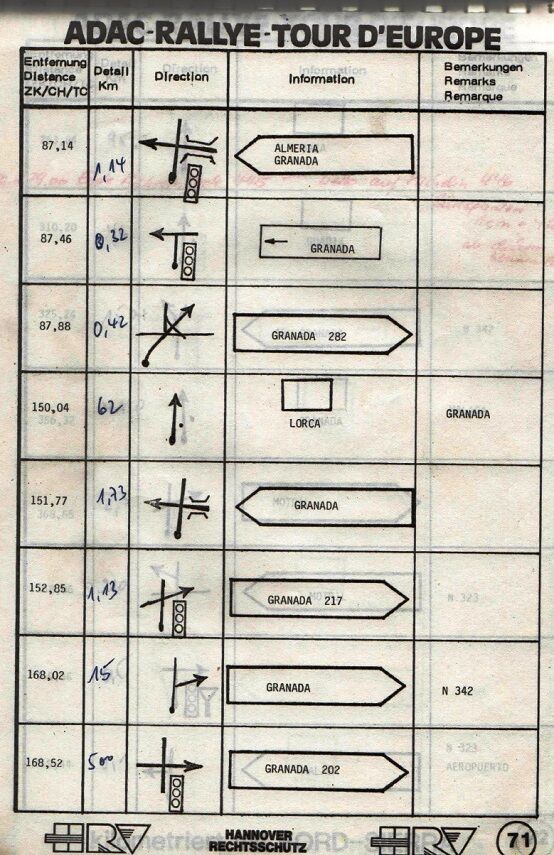 ADAC-RALLYE-TOUR D'EUROPE
Entfernung Distance ZK/CH/TC
Detail Km
Direction
Information
Bemerkungen Remarks Remarque
87,14 1,14 ALMERIA
GRANADA
87,46 0,32 GRANADA
87,88 0,42 GRANADA 282
150,04 62 LORCA GRANADA
151,77 1,73 GRANADA
152,85 1,13 GRANADA 217
168,02 15, GRANADA N 342
168,52 500 GRANADA 202
HRV HANNOVER RECHTSSCHUTZ HRV 71